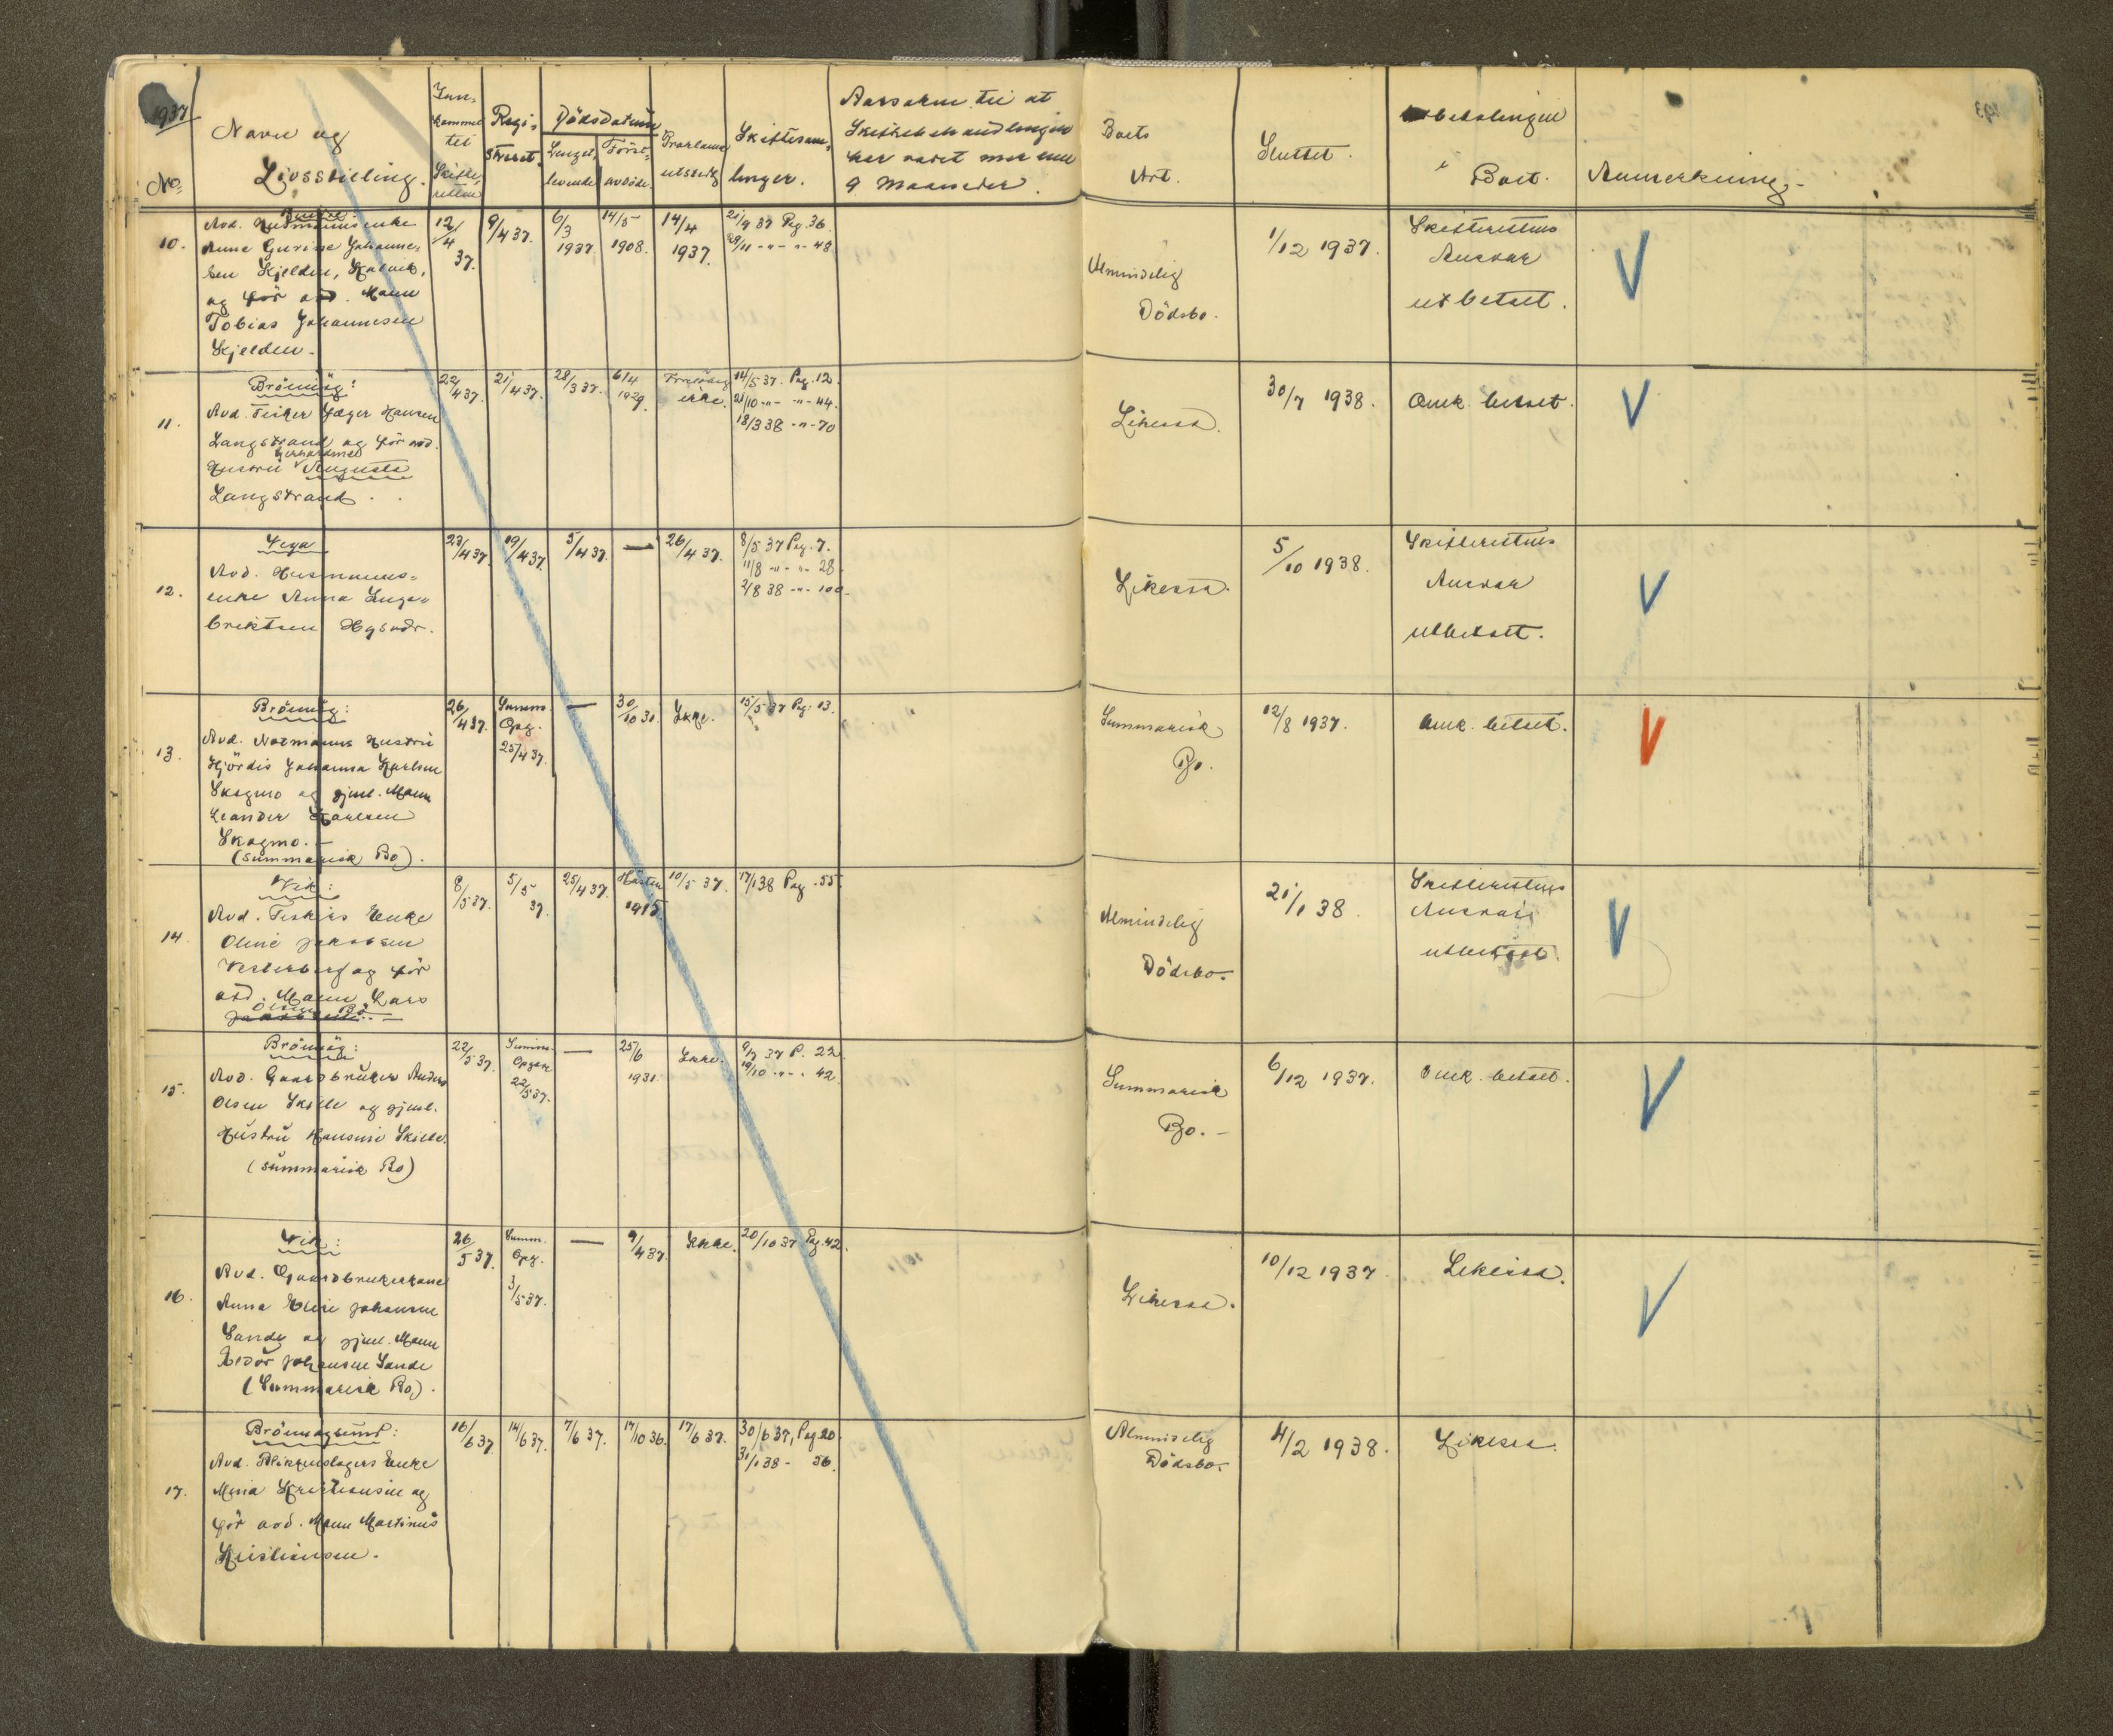 1937
No.
Navn og
Livsstilling.
Inn-
kommet
til
Skifte-
retten
Regi-
streret.
Dödsdatum
Lengst-
levende
Först-
avdöde.
Proklama
utstedt
Skiftesam-
linger.
Aarsaken til at
Skiftebehandlingen
har varet mer enn
9 Maaneder.
Boets
Art.
Sluttet.
betalingen
i
Boet.
Anmerkning.
10.
Avd. enke
Anna Gurine Johanne-
sen Skjelden,
og för avd. Mann
Tobias Johannesen
Skjelden.
12/4
37.
9/4 37.
6/3
1937.
14/5
1908.
14/4
1937.
21/9 37 Pag. 36.
29/11 -"- -"- 48
Almindelig
Dödsbo.
1/12 1937.
Skifterettens
Ansvar
utbetalt.
11.
Brönnöy:
Avd. Fisker Jæger Hansen
Langstrand og för avd.
Hustru Augusta
Langstrand.
22/4 37.
21/4 37.
28/3 37.
6/4
1929.
Foreløbig
ikke.
14/5 37. Pag. 12.
21/10 -"- -"- 44.
18/3 38 -"- 70
Likesaa.
30/7 1938.
Omk. betalt.
12.
Vega
Avd. Husmanns-
enke Anna Inge-
briktsen
23/4 37.
19/4 37.
5/4 37.
—
26/4 37.
8/5 37 Pag. 7.
11/8 -"- -"- 28
2/8 38 -"- 100
Likesaa.
5/10 1938.
Skifterettens
Ansvar
utbetalt.
13.
Brönnöy:
Avd. Notmanns Hustru
Hjördis Johanna Karlsen
Skogmo og gjenl. Mann
Leander Karlsen
Skogmo.
(Summarisk Bo).
26/4 37.
Summ.
Opg.
25/4 37.
—
30/10 31.
Ikke.
15/5 37 Pag. 13.
Summarisk
Bo.
12/8 1937.
Omk. betalt.
14.
Vik:
Avd. Fiskers Enke
Oline Jakobsen
Vesterberg og för
avd. Mann Lars
8/5 37.
5/5
37.
25/4 37.
Hösten
1915.
10/5 37.
17/1 38 Pag. 55.
Almindelig
Dödsbo.
21/1 38.
Skifterettens
Ansvar
utbetalt.
15.
Brönnöy:
Avd. Gaardbruker Anders
Olsen Skille og gjenl.
Hustru Hansine Skille.
(Summarisk Bo)
22/5 37.
Summ.
Opgave
22/5 37.
—
25/6
1931.
Ikke.
9/7 37 P. 22
19/10 -"- - 42.
Summarisk
Bo. -
6/12 1937.
Omk. betalt.
16.
Vik:
Avd. Gaardbrukerkone
Anna Elise Johansen
Sande og gjenl. Mann
Johansen Sande
(Summarisk Bo).
26/5 37.
Summ.
Opg.
3/5 37.
—
9/4 37.
Ikke.
20/10 37 Pag. 42.
Likesaa.
10/12 1937.
Likesaa.
17.
Brönnöysund:
Avd. Blikkenslagers Enke
Mina Kristiansen og
för avd. Mann Martinus
Kristiansen.
16/6 37.
14/6 37.
7/6 37.
17/10 36.
17/6 37.
30/6 37, Pag 20.
31/1 38 - 56.
Almindelig
Dödsbo.
4/2 1938.
Likesaa.